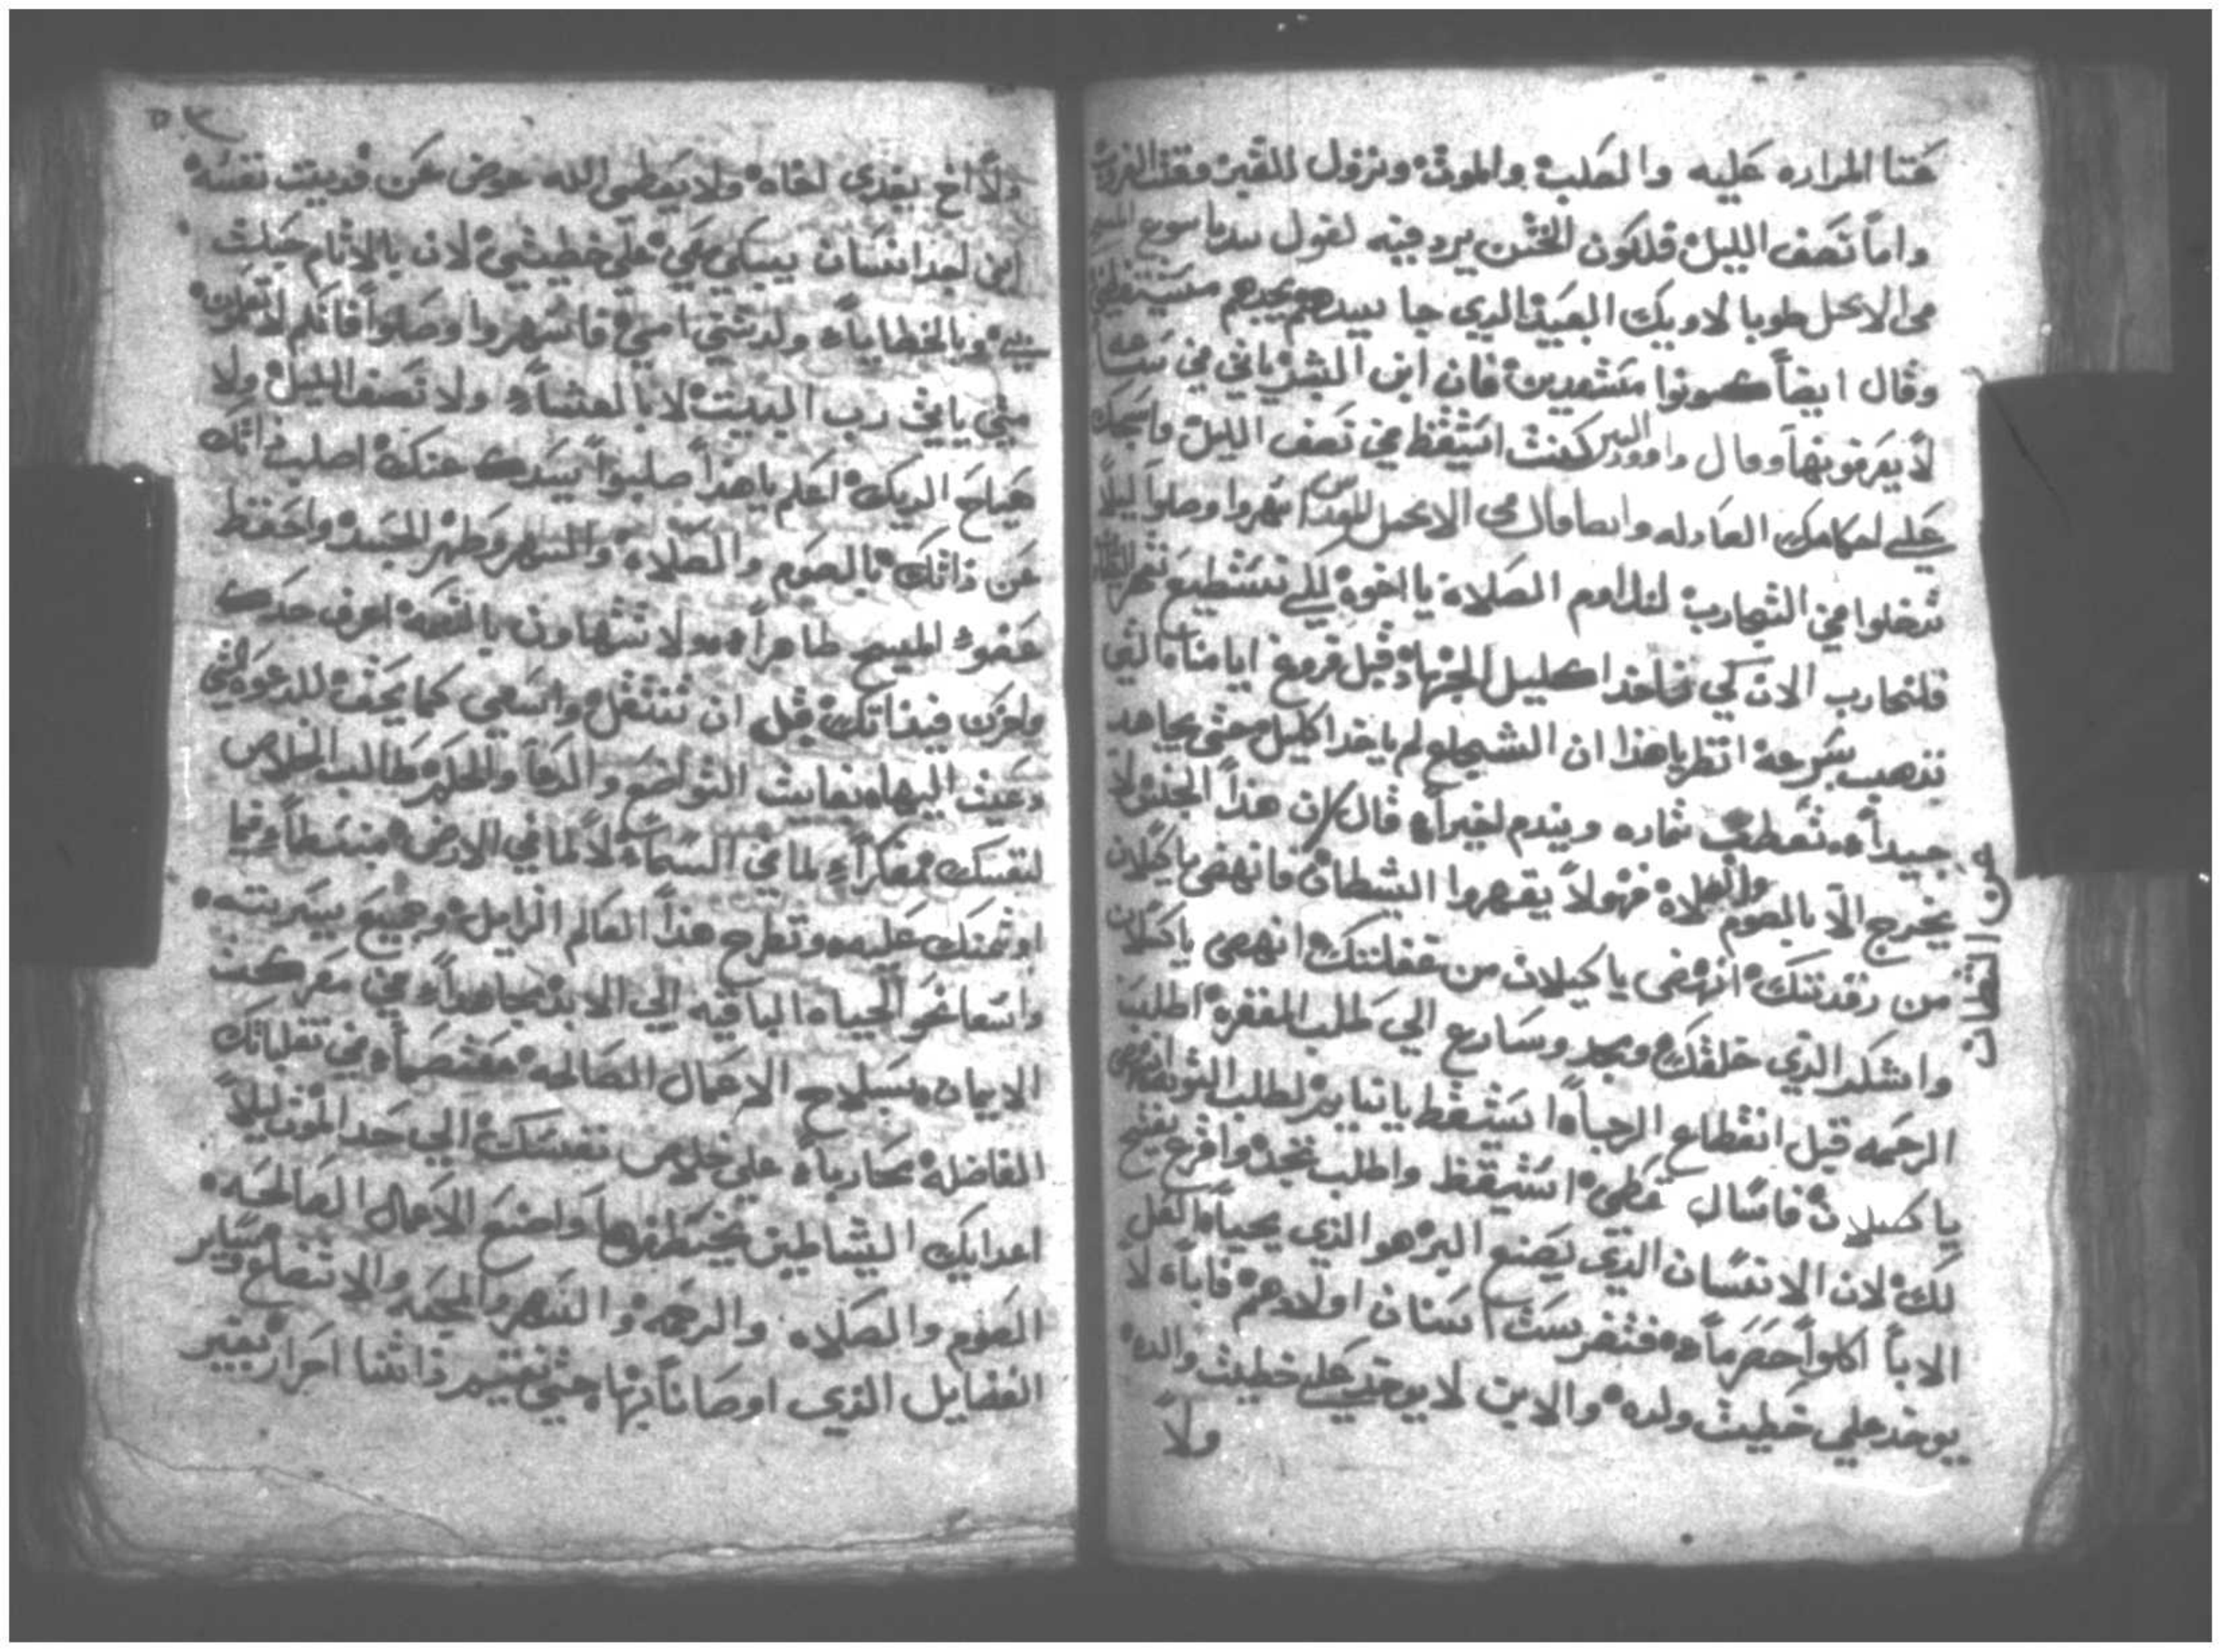 عتا المراره عليه والصلب والموت ونزول القبر وقت الغروب
واما نصف الليل فلكون الختن يرد فيه لقول سيدنا يسوع المسيح
في الانجيل طوبا لاوليك العبيد الدي جا سيدهم يجدهم مستيقظين
وقال ايضاً كونوا مستعدين فان ابن البشر ياتي في ساعه
لا يعرفونها وقال داوود النبي كنت استيقظ في نصف الليل واسبحك
علي احكامك العادله وايضا قال في الانجيل المقدس اسهروا وصلوا ليلا
تدخلوا في التجارب لنداوم الصلاة يا اخوة لكي نستطيع
فلنحارب الان كي ناخد اكليل الجهاد قبل فروغ ايامنا التي
تذهب بسرعة انظر ياهذا ان الشجاع لم ياخد اكليل حتي يجاهد
جيداً تعطب ثماره ويندم اخيراً قال ان هذا الجنس لا
يخرج الا بالصوم والصلاة فهولا يقهروا الشيطان فانهض يا كسلان
من رقدتك انهض يا كسلان من غفلتك انهض يا كسلان
واشكر الذي خلقك ومجد وسارع الي طلب المغفرة اطلب
الرحمه قبل انقطاع الرجاء استيقظ يا نايم لطلب التوبه انهض
يا كسلان فاسال تعطي استيقظ واطلب تجد واقرع يفتح
لك لان الانسان الدي يصنع البر هو الذي يحيا
الابا اكلوا حصرماً فتضرست اسنان اولادهم فاباء لا
يوخد علي خطيت ولده والابن لا يوخد علي خطيت والده
ولا
من القطات
٥٣
ولا اخ يفدي اخاه ولا يعطي الله عوض عن فديت نفسه
اين اجد انسان يبكي معي علي خطيتي لان بالاثام حبلت
بي وبالخطايا ولدتني امي فاسهروا وصلوا فانكم لا تعلمون
متي ياتي رب البيت لا بالعشاء ولا نصف الليل ولا
صياح الديك اعلم يا هذا صلبوا سيدك عنك اصلب ذاتك
عن ذاتك بالصوم والصلاة والسهر وطهر الجسد واحفظ
عضو المسيح طاهراً ولا تتهاون بالنعمه اعرف حدك
واحزن في ذاتك قبل ان تنتقل واسعي كما يحق للدعوة التي
دعيت اليها بغايت التواضع والدعا والحلم طالب الخلاص
لنفسك مفكراً لما في السماء لا لما في الارض مبسطاً فيما
اوتمنت عليه وتطرح هذا العالم الزايل وجميع سيرته
واسعا نحو الحياه الباقيه الي الابد مجاهداً في معركت
الايمان بسلاح الاعمال الصالحه معتصماً في تقلباتك
الفاضلة محارباً علي خلاص نفسك الي حد الموت ليلا
اعدايك الشياطين يختطفوها واصنع الاعمال الصالحه
الصوم والصلاه والرحمه والسهر والمحبه والاتضاع وساير
الفضايل الذي اوصانا بها حتي نقتيم ذاتنا احرار بغير